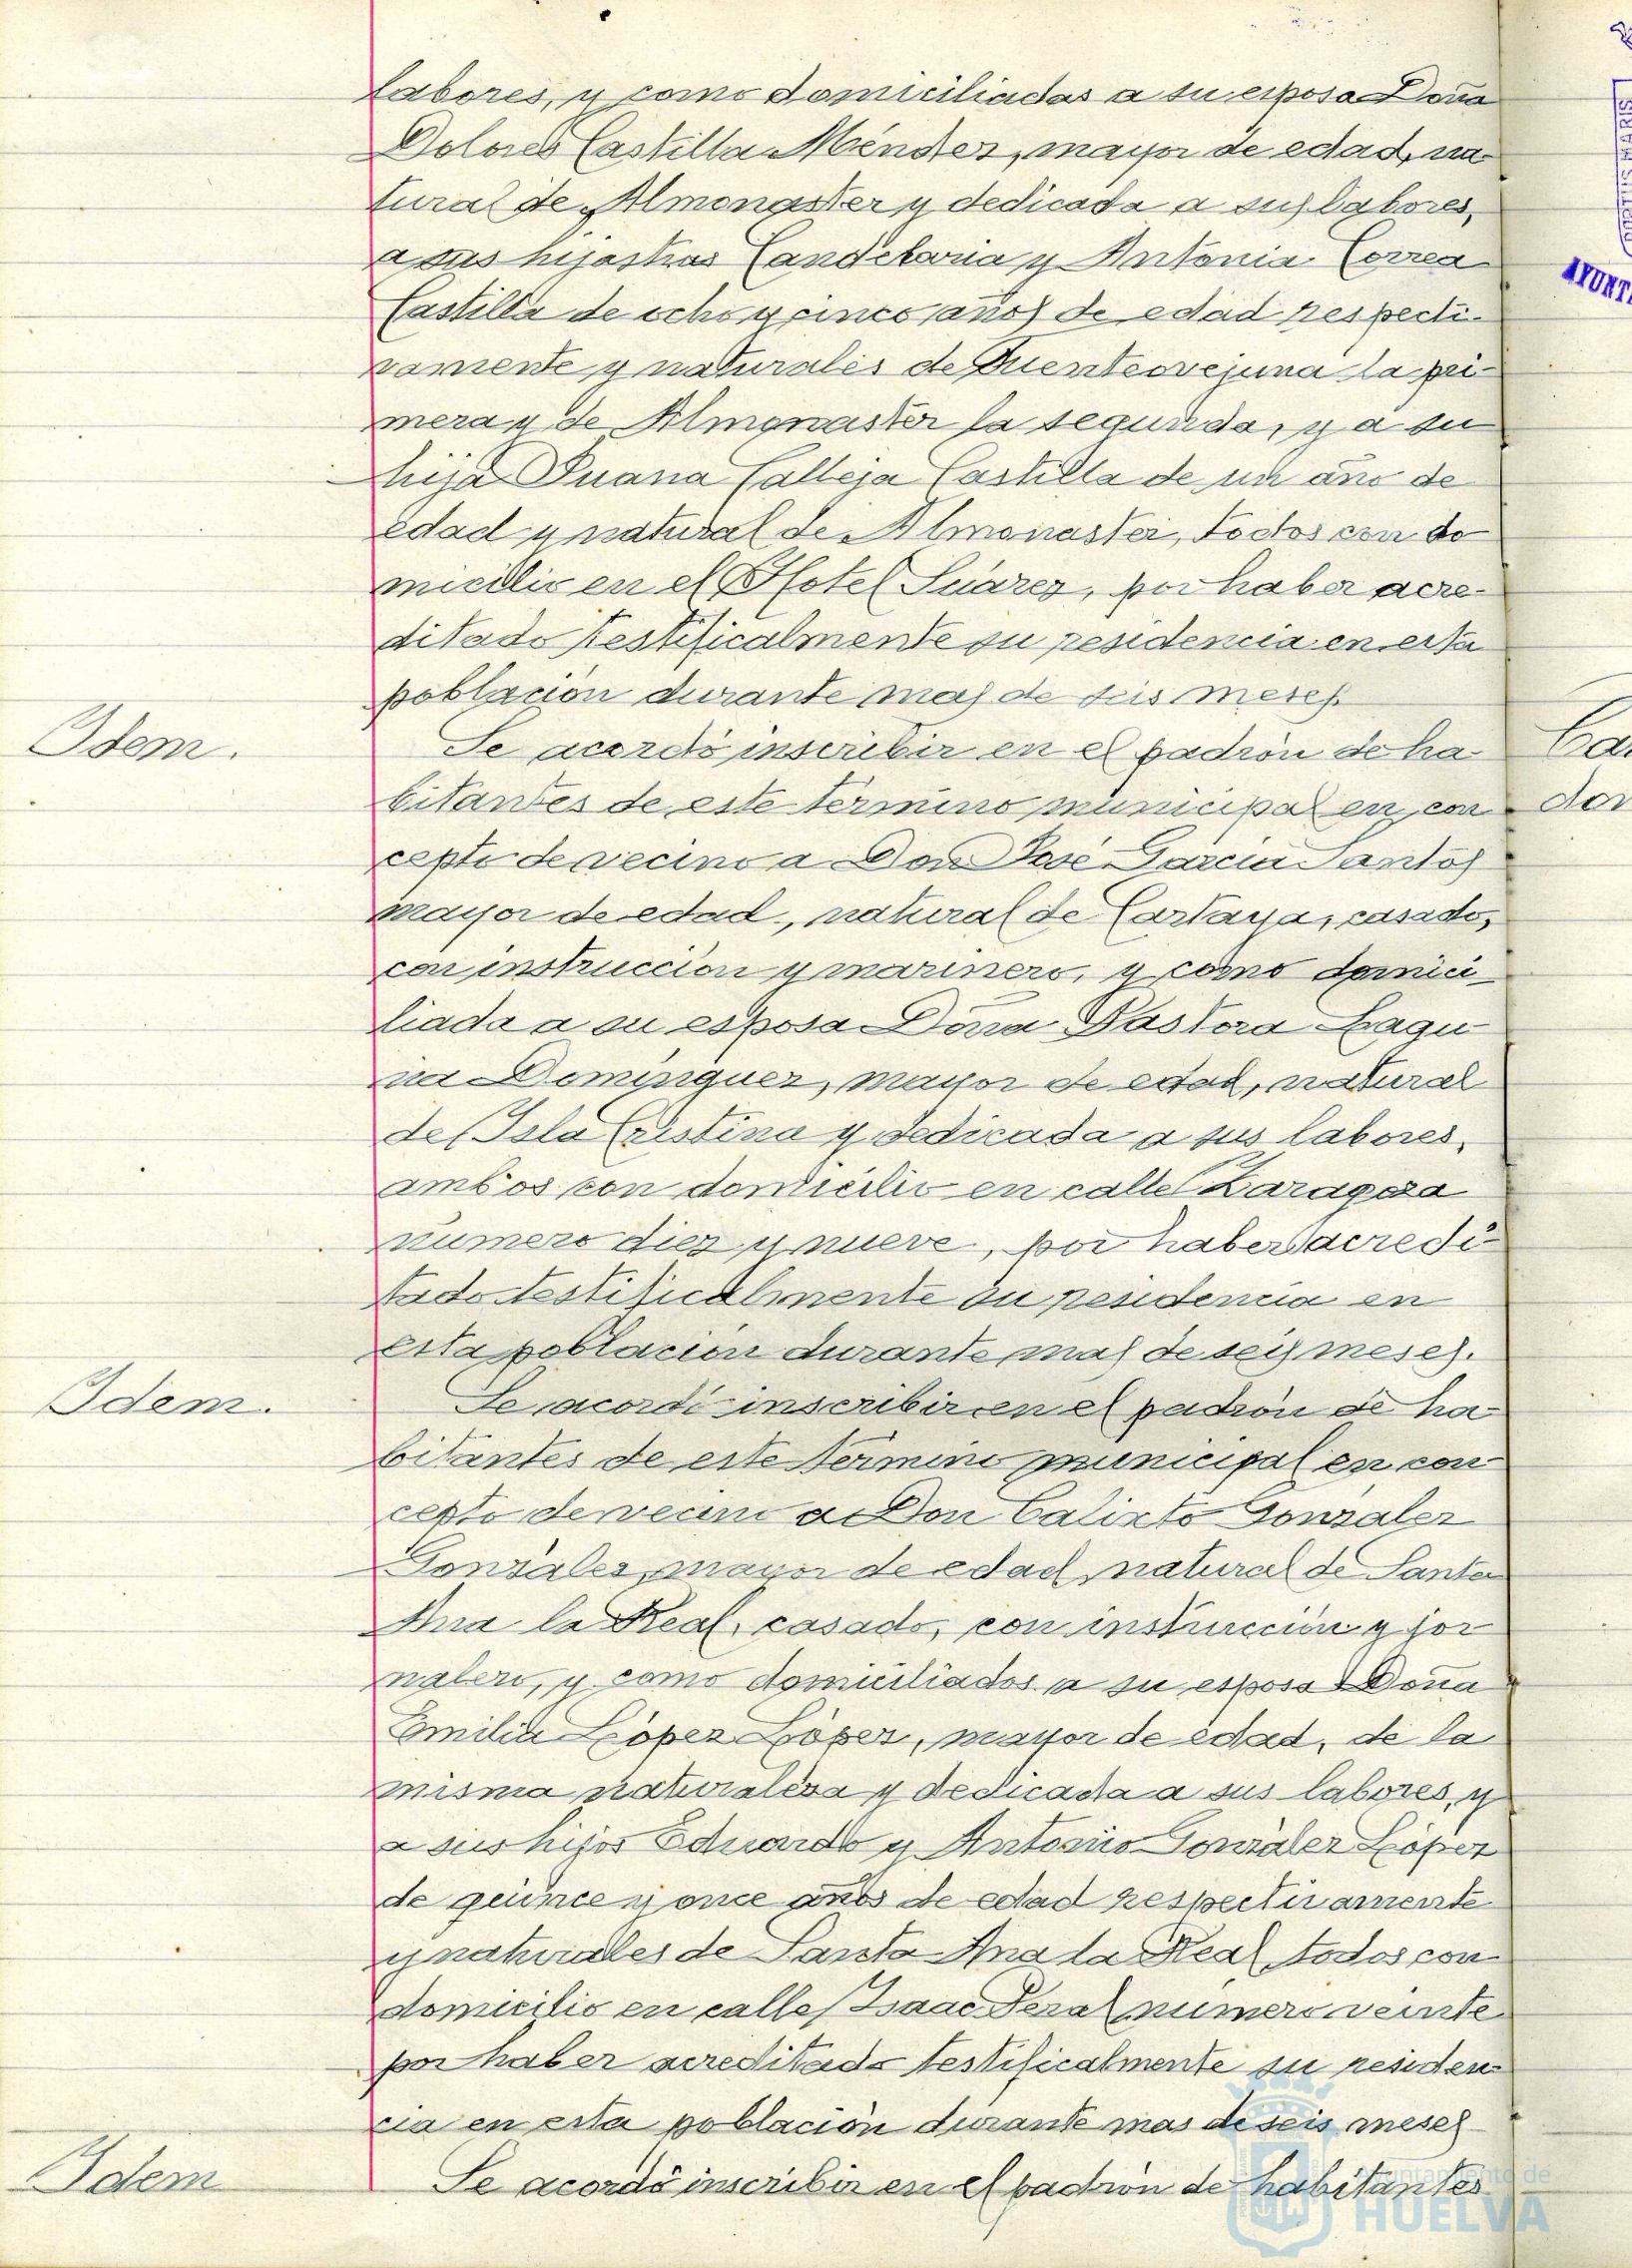 labores, y como domiciliadas a su esposa Doña
Dolores Castilla Méndez, mayor de edad, na-
tural de Almonaster y dedicada a sus labores,
a sus hijastras Candelaria y Antonia Correa
Castilla de ocho y cinco años de edad respecti-
vamente y naturales de Fuenteovejuna la pri-
mera y de Almonaster la segunda, y a su
hija Juana Calleja Castilla de un año de
edad y natural de Almonaster, todos con do
micilio en el Hotel Suárez, por haber acre-
ditado testificalmente su residencia en esta
población durante mas de seis meses.
Idem.
Se acordó inscribir en el padrón de ha-
bitantes de este término municipal en con
cepto de vecino a Don José Garcia Santos
mayor de edad, natural de Cartaya, casado,
con instrucción y marinero, y como domici-
liada a su esposa Doña Pastora Lagu
na Dominguez, mayor de edad, natural
de Isla Cristina y dedicada a sus labores,
ambos con domicilio en calle Zaragoza
número diez y nueve, por haber acredi-
tado testificalmente su residencia en
esta población durante mas de seis meses.
Idem.
Se acordó inscribir en el padrón de ha-
bitantes de este término municipal en con-
cepto de vecino a Don Calixto Gonzalez
González, mayor de edad, natural de Santa
Ana la Real, casado, con instrucción y jor
nalero, y como domiciliados a su esposa Doña
Emilia López López, mayor de edad, de la
misma naturaleza y dedicada a sus labores, y
a sus hijos Eduardo y Antonio González López
de quince y once años de edad respectivamente
y naturales de Santa Ana la Real, todos con
domicilio en calle Isaac Peral número veinte
por haber acreditado testificalmente su residen-
cia en esta población durante mas de seis meses
Idem
Se acordó inscribir en el padrón de habitantes
Ayuntamiento de
HUELVA